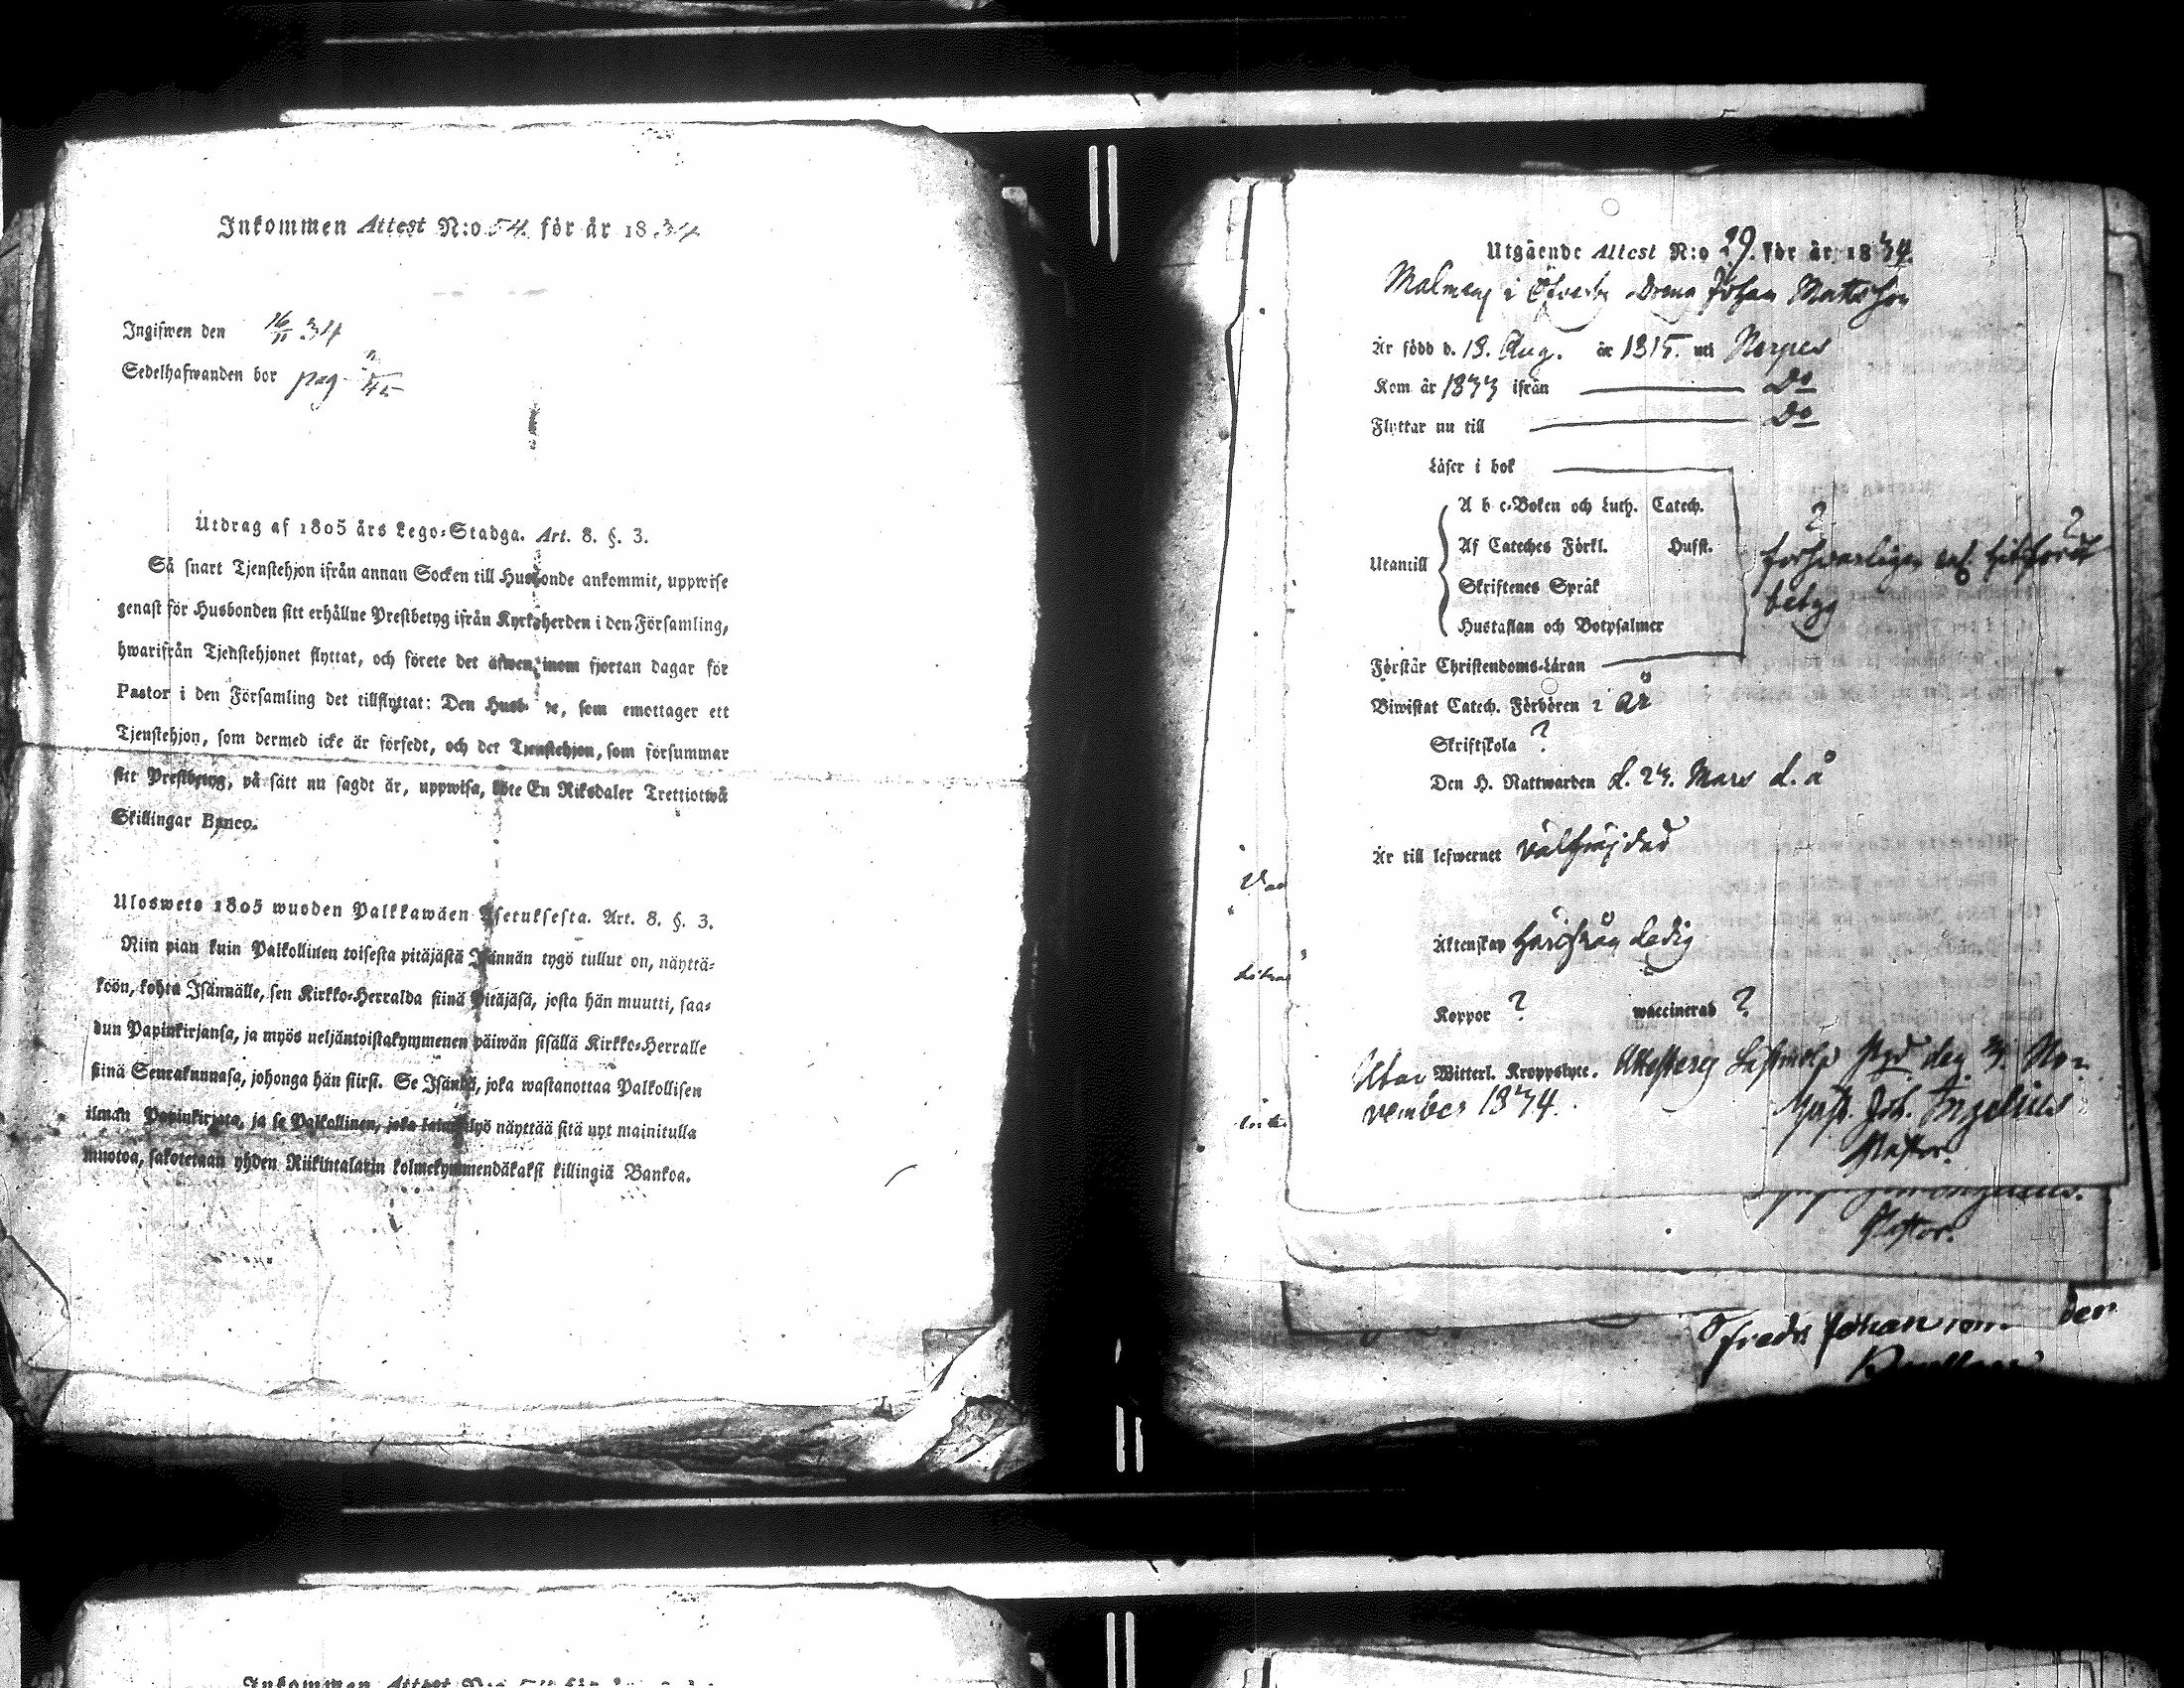 Inkommen Attest N:o 54. för år 1834
Ingifwen den 16/11 34
Sedelhafwanden bor pag 45
Utdrag af 1805 års Lego-Stadga. Art. 8. §. 3.
Så snart Tjenstehjon ifrån annan Socken till Husbonde ankommit, uppwise
genast för Husbonden sitt erhållne Prestbetyg ifrån Kyrkoherden i den Församling,
hwarifrån Tjenstehjonet flyttat, och förete det äfwen inom fjortan dagar för
Pastor i den Församling det tillflyttat: Den Husb e, som emottager ett
Tjenstehjon, som dermed icke är försedt, och det Tjenstehjon, som försummar
sitt Prestbetyg, på sätt nu sagdt är, uppwisa, böte En Riksdaler Trettiotwå
Skillingar Banco.
Uloswето 1805 wuoden Palkkawäen Asetuksesta. Art. 8. §. 3.
Niin pian kuin Palkollinen toisesta pitäjästä Isännän tygö tullut on, näyttä-
köön, kohta Isännälle, sen Kirkko-Herralda siinä pitäjäsä, josta hän muutti, saa-
dun Papinkirjansa, ja myös neljäntoistakymmenen päiwän sisällä Kirkko-Herralle
siinä Seurakunnasa, johonga hän siirsi. Se Isändä, joka wastanottaa Palkollisen
ilman Papinkirjata, ja se Palkollinen, joka laiminlyö näyttää sitä nyt mainitulla
muotoa, sakotetaan yhden Riikintalarin kolmekymmendäkaksi killingiä Bankoa.
Utgående Attest N:o 29. för år 1834.
Malmen i Öfverby Dreng Johan Matsson
Är född d. 13. Aug. år 1815. uti Nerpes
Kom år 1833 ifrån Do
Flyttar nu till Do
Läser i bok
Utantill
A b c-Boken och Luth. Catech.
Af Cateches Förkl. Husst.
Skriftenes Språk
Hustaflan och Botpsalmer
försvarligen enl. hitfördt
betyg
Förstår Christendoms-Läran
Biwistat Catech. Förhören i år
Skriftskola ?
Den H. Nattwarden d. 23. Mars d. å
Är till lefwernet välfrejdad
Äktenskap härifrån ledig
Koppor ? waccinerad ?
Utan Witterl. Kroppslyte. Attesterar den 3. No-
vember 1834.
Gust. Joh. Ingelius
Pastor.
Pastor.
Fredr Johan